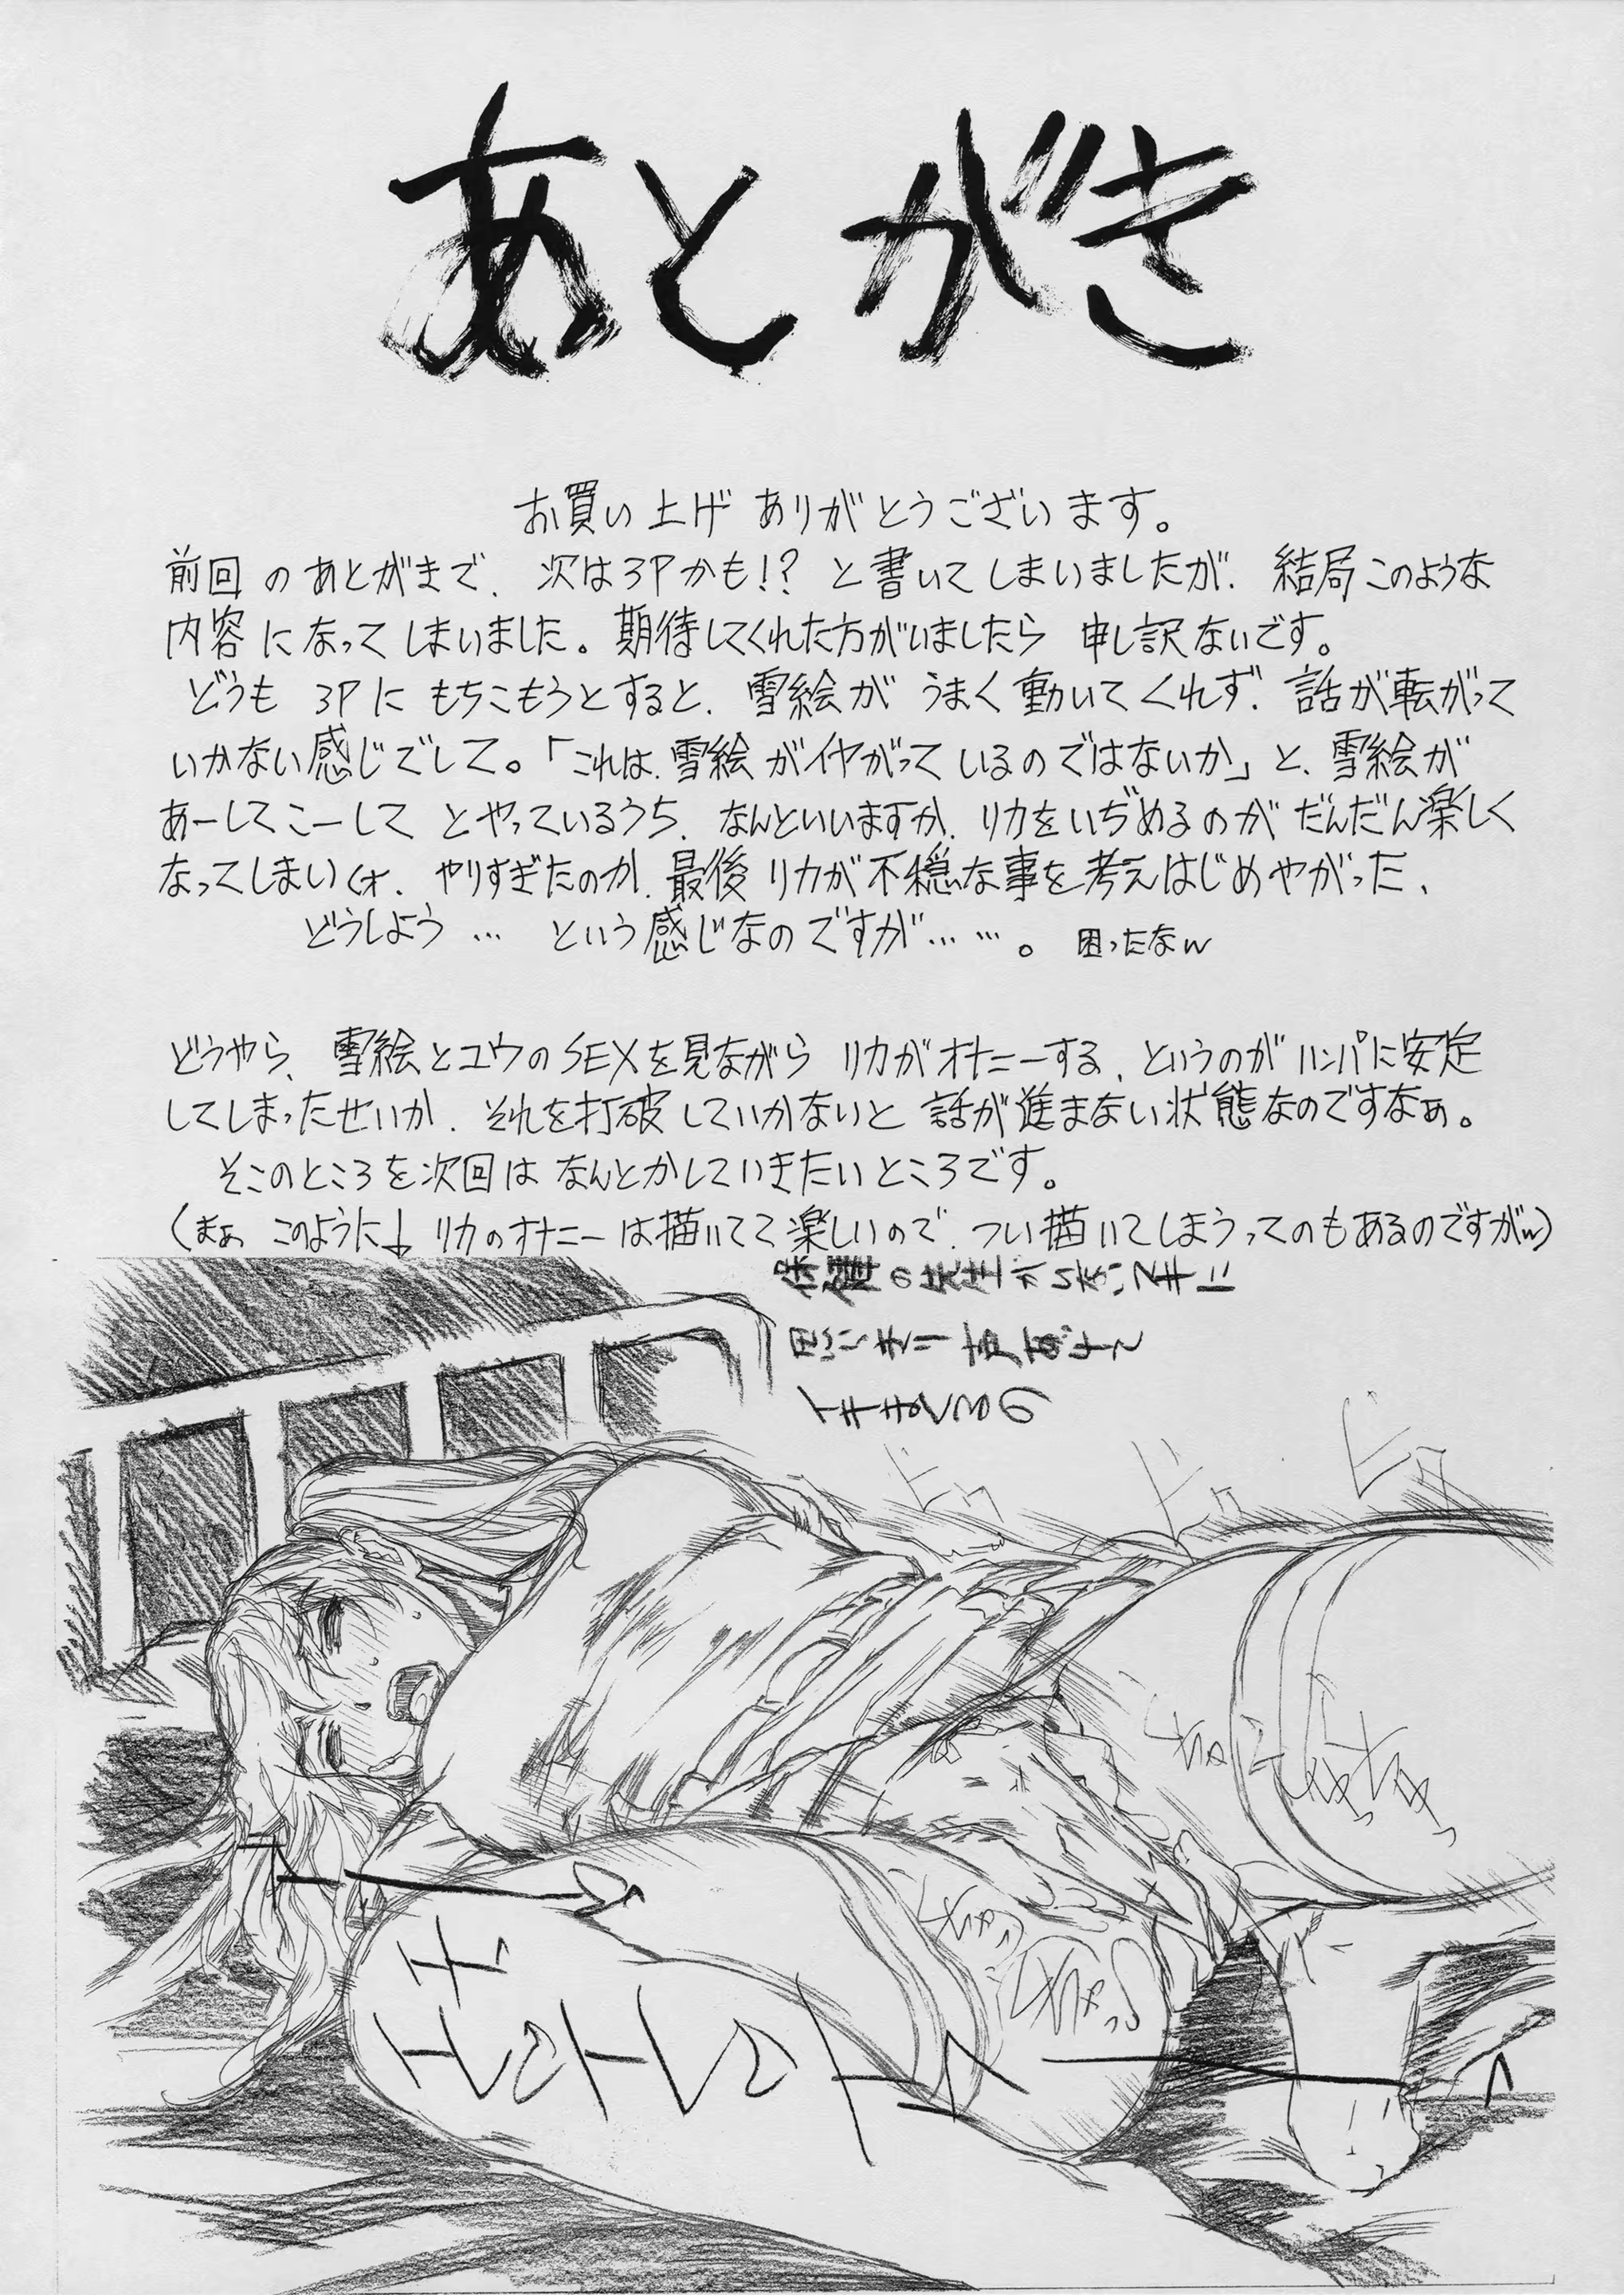 あとがき
お買い上げ ありがとうございます。
前回のあとがきで、次は3Pかも!? と書いてしまいましたが、結局このような
内容になってしまいました。期待してくれた方がいましたら 申し訳ないです。
どうも 3Pに もちこもうとすると、雪絵が うまく動いてくれず、話が転がって
いかない感じでして。「これは、雪絵がイヤがっているのではないか」と、雪絵が
あーしてこーして とやっているうち、なんといいますか、リカをいぢめるのが だんだん楽しく
なってしまい(オ、やりすぎたのか、最後 リカが不穏な事を考えはじめやがった、
どうしよう… という感じなのですが……。 困ったなw
どうやら、雪絵とユウのSEXを見ながら リカがオナニーする、というのが ハンパに安定
してしまったせいか、それを打破していかないと 話が進まない状態なのですなぁ。
そこのところを次回は なんとかしていきたいところです。
(まぁ このように↓ リカのオナニーは描いてて楽しいので、つい描いてしまうってのもあるのですがw)
ビク
ビク
ビク